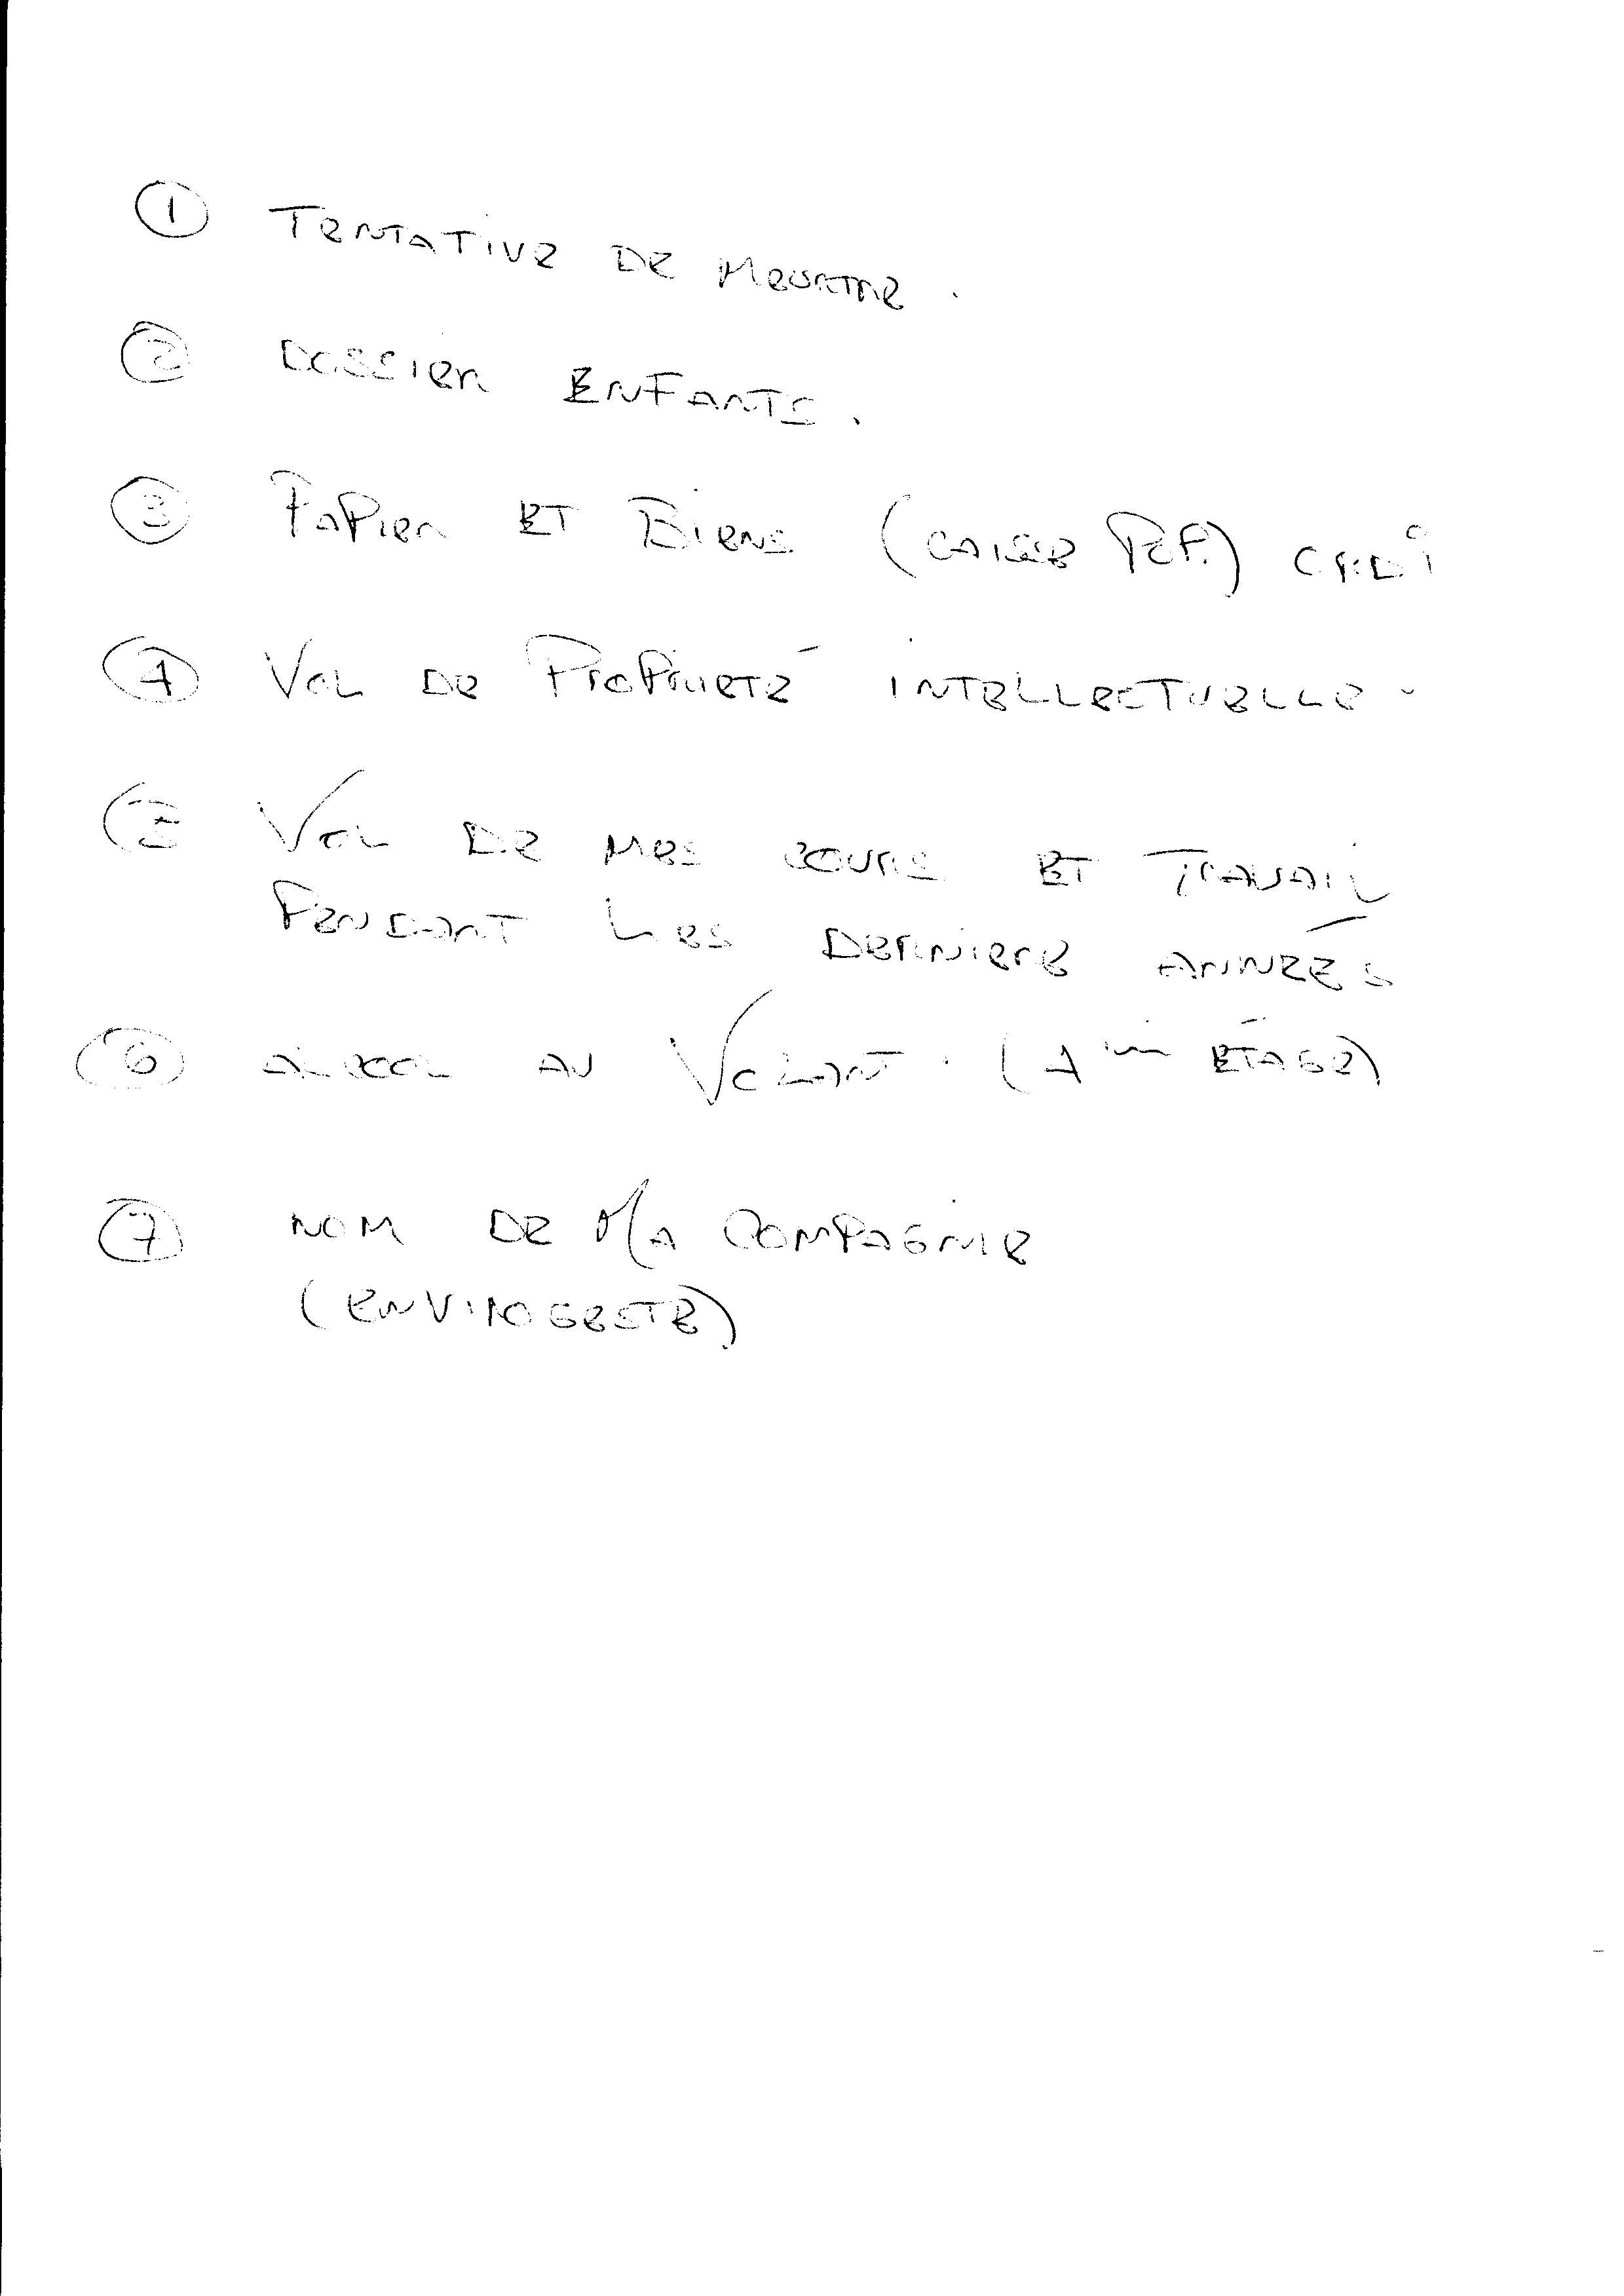 ① TENTATIVE DE MEURTRE.
② DOSSIER ENFANTS.
③ PAPIER ET BIENS (CAISSE POP.)
④ VOL DE PROPRIETÉ INTELLECTUELLE.
⑤ VOL DE MES COURS ET TRAVAIL
PENDANT LES DERNIERE ANNÉES
⑥ ALCOOL AU VOLANT. (4ième ÉTAGE)
⑦ NOM DE MA COMPAGNIE
(ENVIROGESTE)